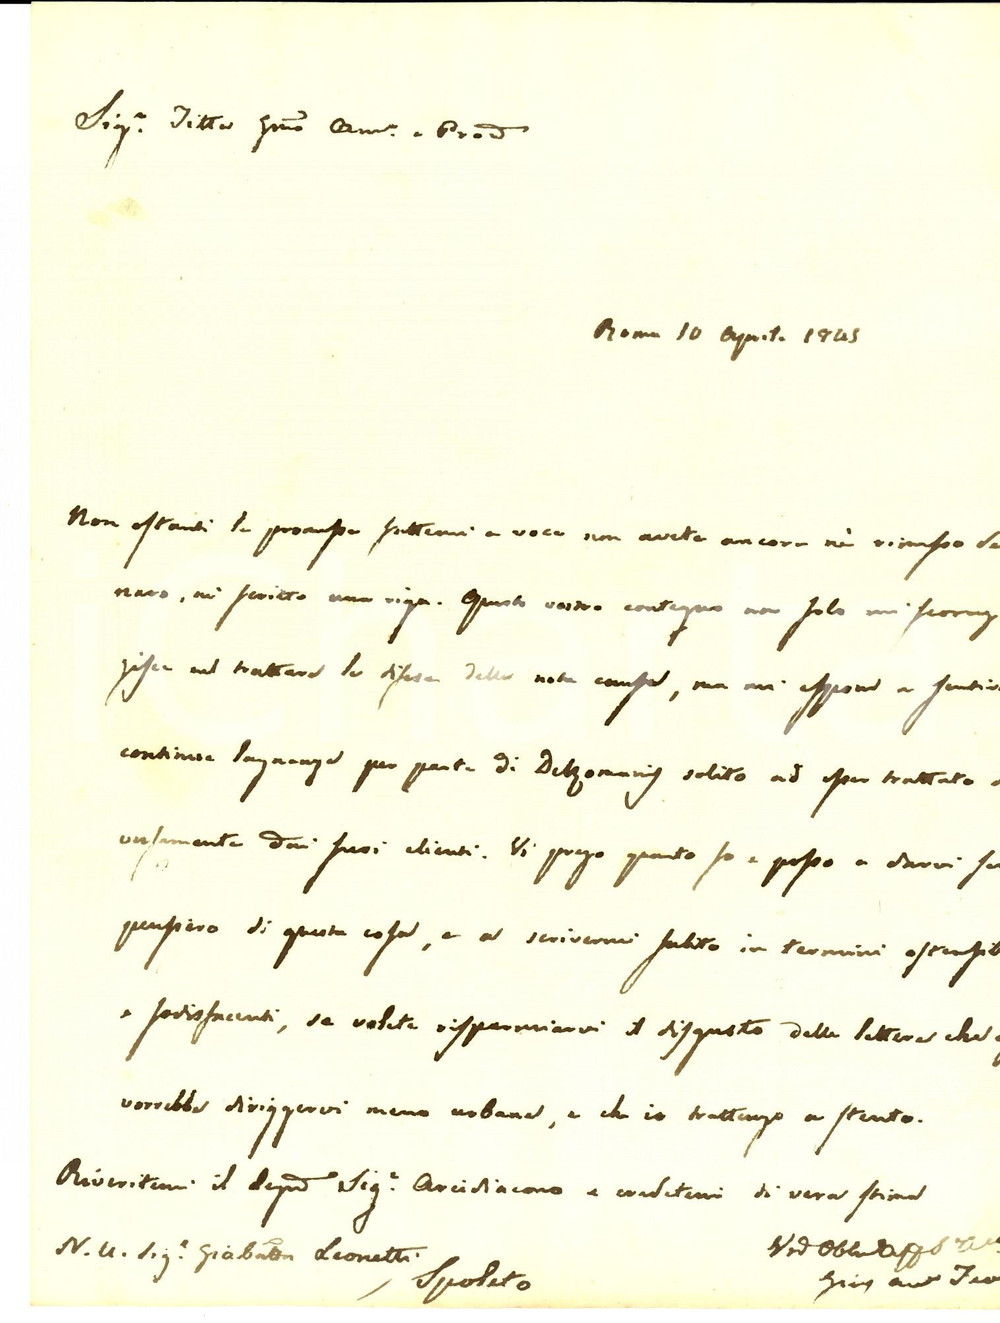 Sig.r Titta Gmo Am.o e Prod
Roma 10 Aprile 1845
Non ostanti le promesse fattemi a voce non avete ancora nè rimesso de
naro, nè scritto una riga. Questo vostro contegno non solo mi scorag
gisce nel trattare la difesa della nota causa, ma mi espone a sentire
continue lagnanze per parte di solito ad esser trattato
versamente dai suoi clienti. Vi prego quanto so e posso a darvi
pensiero di questa cosa, e a scrivermi subito in termini ostensib
e sodisfacenti, se volete risparmiarvi il disgusto delle lettere che
vorrebbe diriggervi meno urbane, e che io trattengo a stento.
Riveritemi il degno Sig.r Arcidiacono e credetemi di vera stima
N. U. Sig.r Giobatta Leonetti
Spoleto